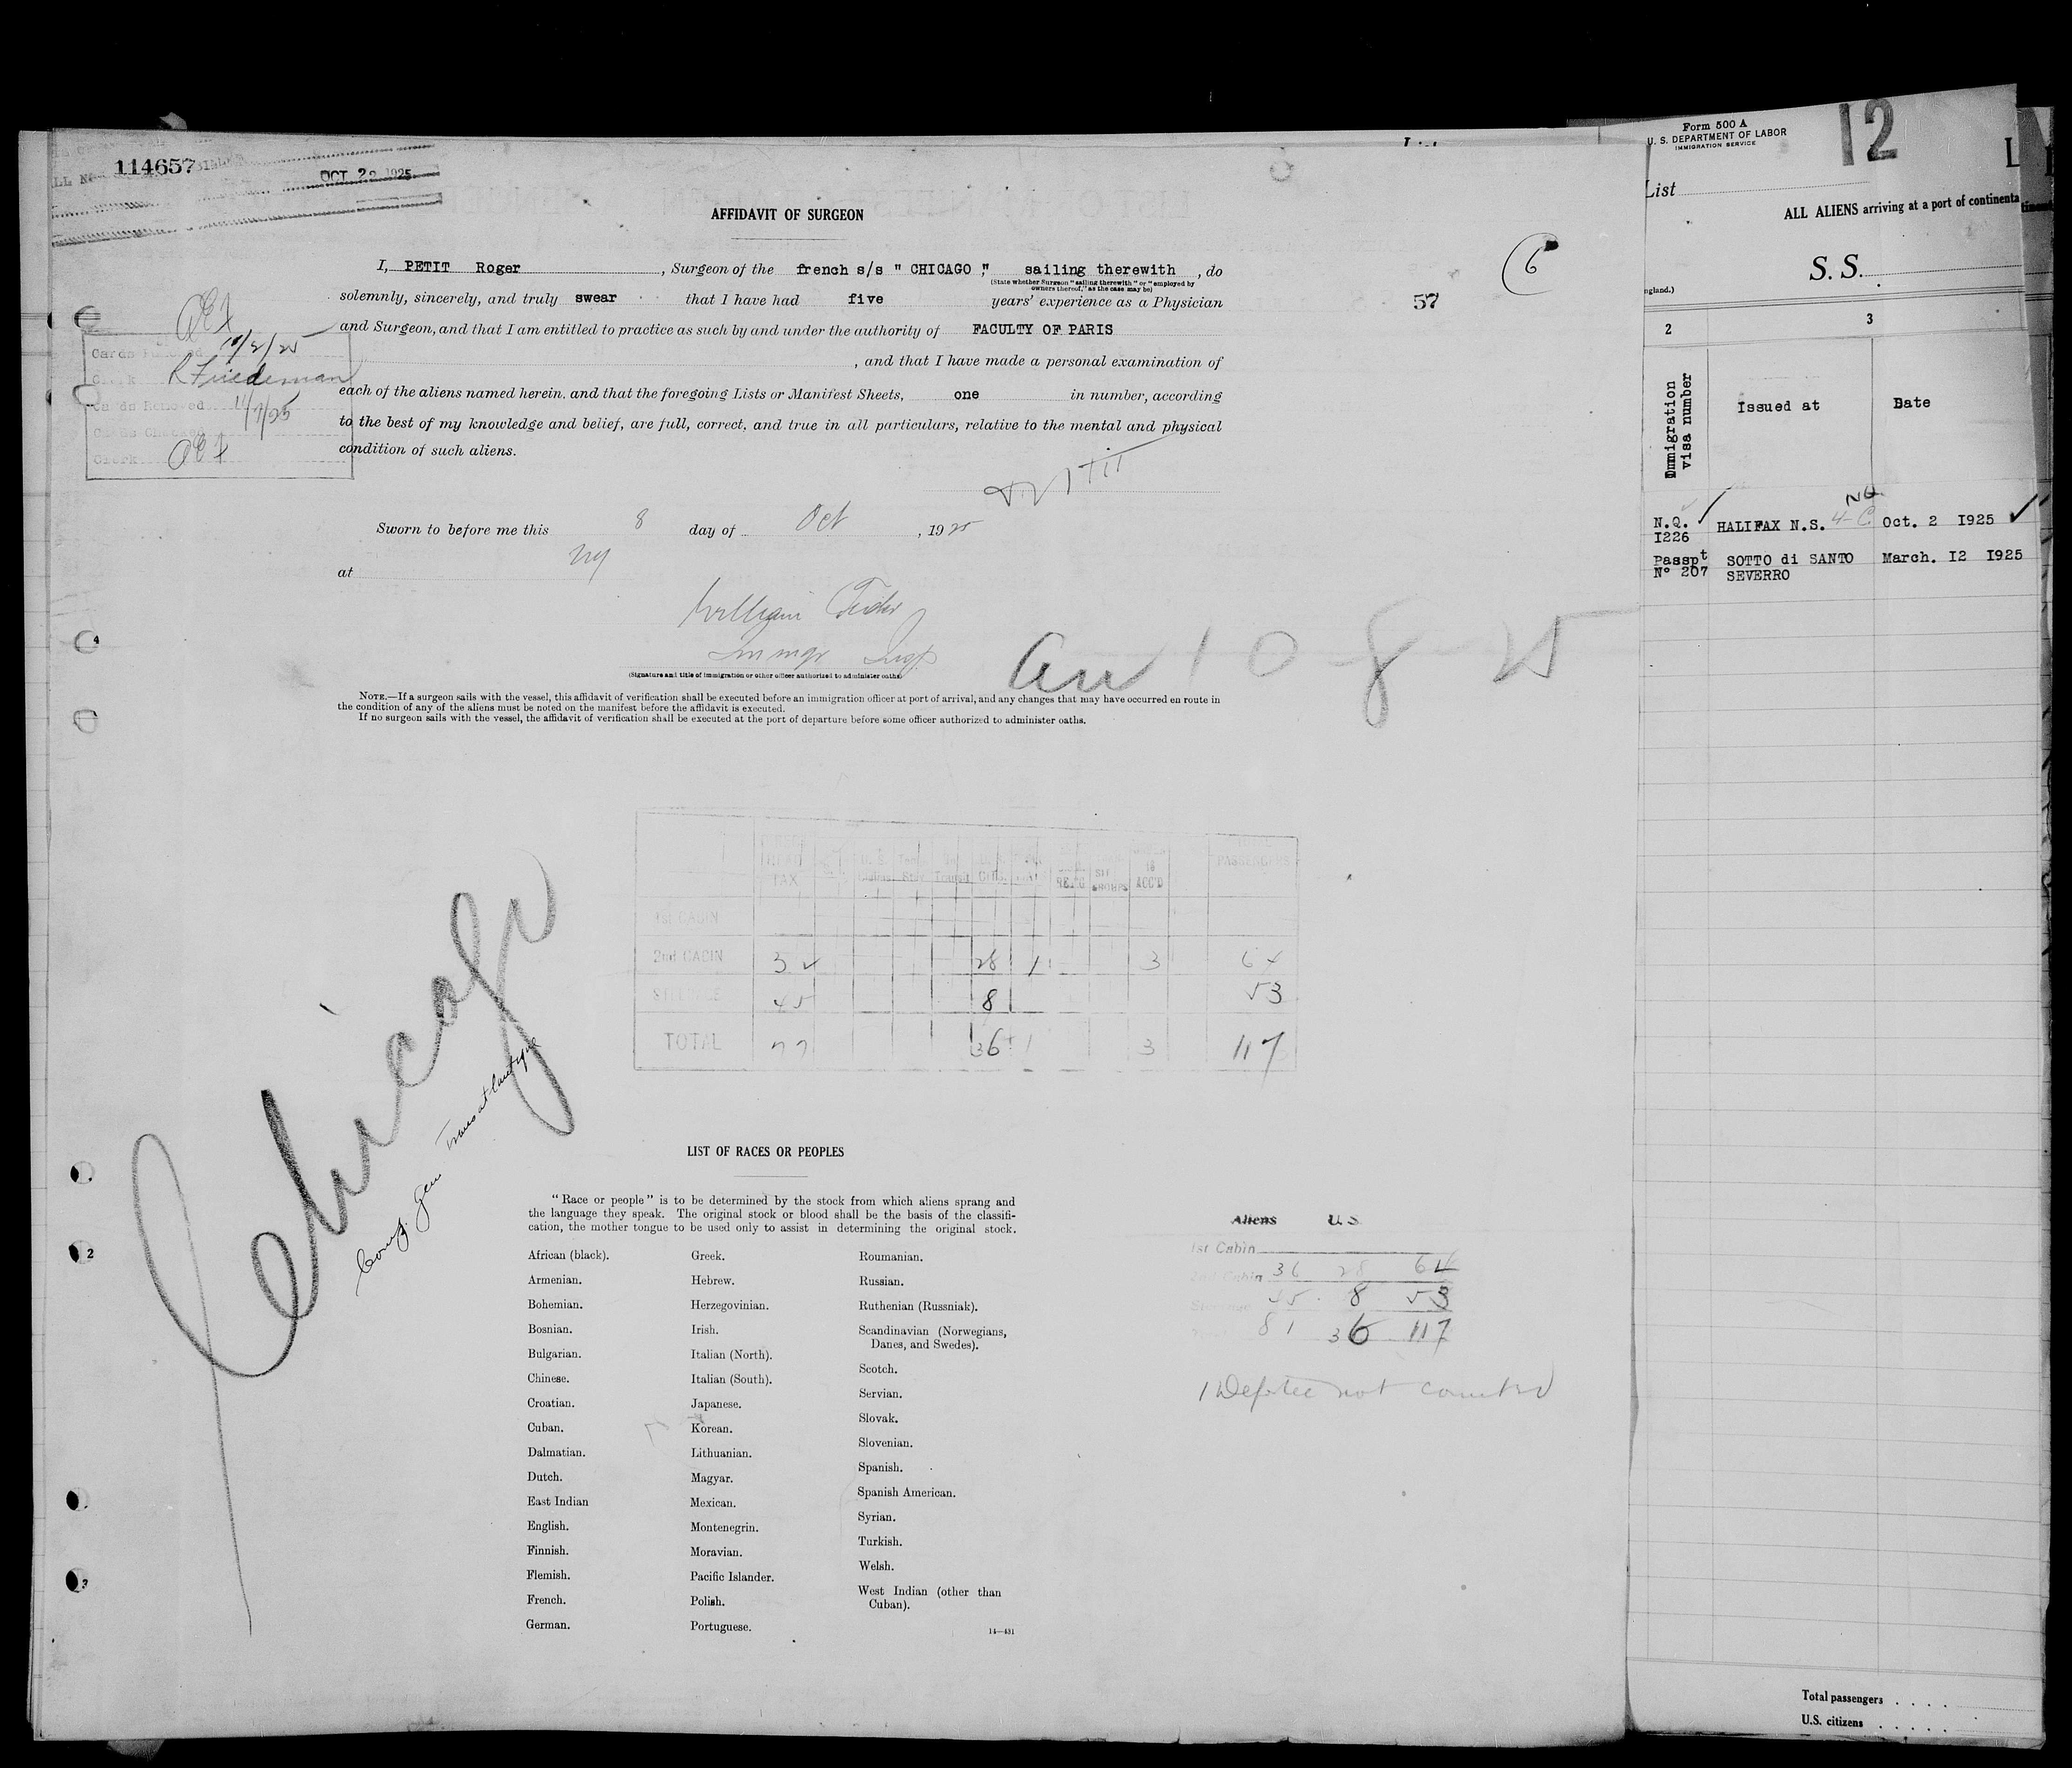 114657
OCT 22 1925
AFFIDAVIT OF SURGEON
6
I, PETIT Roger, Surgeon of the french s/s " CHICAGO ", sailing therewith, do
(State whether Surgeon "sailing therewith" or "employed by
owners thereof," as the case may be)
solemnly, sincerely, and truly swear that I have had five years' experience as a Physician
57
and Surgeon, and that I am entitled to practice as such by and under the authority of FACULTY OF PARIS
, and that I have made a personal examination of
each of the aliens named herein, and that the foregoing Lists or Manifest Sheets, one in number, according
to the best of my knowledge and belief, are full, correct, and true in all particulars, relative to the mental and physical
condition of such aliens.
R Friedeman
Cards Removed
Clerk
Sworn to before me this 8 day of Oct, 1925
at NY
William
Immgr Insp
(Signature and title of immigration or other officer authorized to administer oaths)
Arr 10 8 25
NOTE.—If a surgeon sails with the vessel, this affidavit of verification shall be executed before an immigration officer at port of arrival, and any changes that may have occurred en route in
the condition of any of the aliens must be noted on the manifest before the affidavit is executed.
If no surgeon sails with the vessel, the affidavit of verification shall be executed at the port of departure before some officer authorized to administer oaths.
HEAD TAX
ACC'D
TOTAL PASSENGERS
1st CABIN
2nd CABIN 32 28 1 3 64
STEERAGE 45 8 53
TOTAL 77 36 1 3 117
Chicago
Comp. Gen Transatlantique
LIST OF RACES OR PEOPLES
"Race or people" is to be determined by the stock from which aliens sprang and
the language they speak. The original stock or blood shall be the basis of the classifi-
cation, the mother tongue to be used only to assist in determining the original stock.
African (black).
Armenian.
Bohemian.
Bosnian.
Bulgarian.
Chinese.
Croatian.
Cuban.
Dalmatian.
Dutch.
East Indian
English.
Finnish.
Flemish.
French.
German.
Greek.
Hebrew.
Herzegovinian.
Irish.
Italian (North).
Italian (South).
Japanese.
Korean.
Lithuanian.
Magyar.
Mexican.
Montenegrin.
Moravian.
Pacific Islander.
Polish.
Portuguese.
Roumanian.
Russian.
Ruthenian (Russniak).
Scandinavian (Norwegians,
Danes, and Swedes).
Scotch.
Servian.
Slovak.
Slovenian.
Spanish.
Spanish American.
Syrian.
Turkish.
Welsh.
West Indian (other than
Cuban).
14—431
Aliens US
1st Cabin
2nd Cabin 36 28 64
Steerage 45 8 53
81 36 117
1 Deptee not counted
Form 500 A
U. S. DEPARTMENT OF LABOR
IMMIGRATION SERVICE
12
List
ALL ALIENS arriving at a port of continenta
S. S.
ngland.)
2
3
Immigration
visa number
Issued at
Date
N.Q.
I226
HALIFAX N.S.
Oct. 2 I925
Passpt
N° 207
SOTTO di SANTO
SEVERRO
March. I2 I925
Total passengers
U.S. citizens